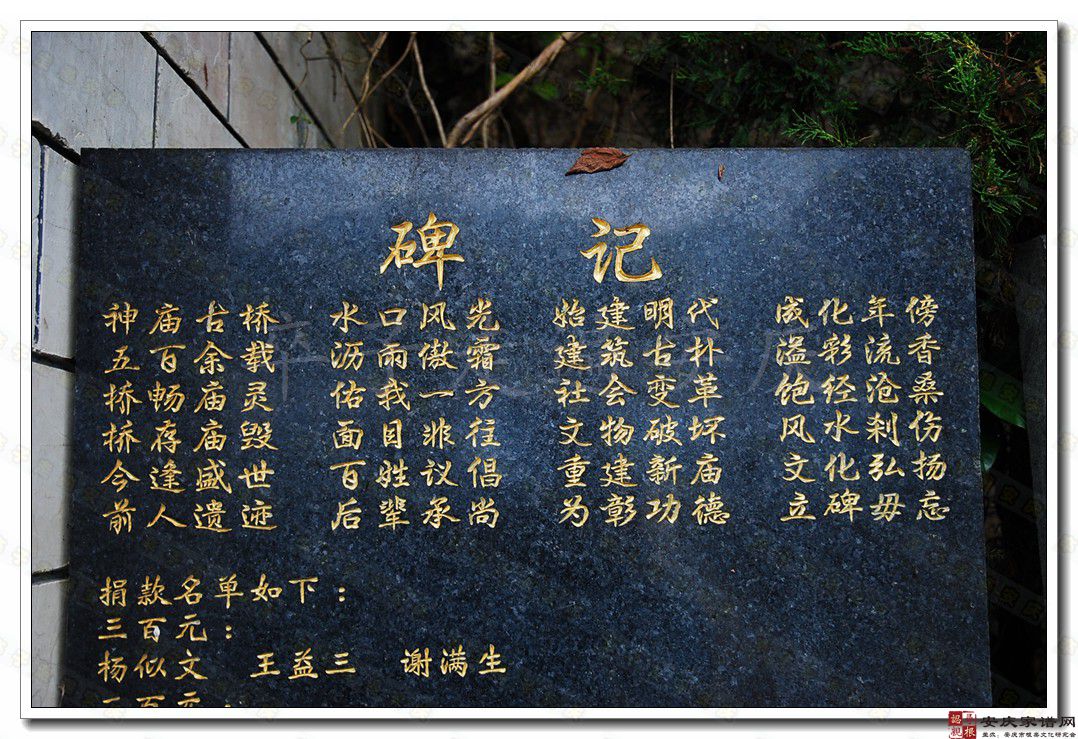 碑 记
神庙古桥 水口风光 始建明代 成化年傍
五百余载 沥雨傲霜 建筑古朴 溢彩流香
桥畅庙灵 佑我一方 社会变革 饱经沧桑
桥存庙毁 面目非往 文物破坏 风水刹伤
今逢盛世 百姓议倡 重建新庙 文化弘扬
前人遗迹 后辈承尚 为彰功德 立碑毋忘
捐款名单如下：
三百元：
杨似文 王益三 谢满生
安庆家谱网